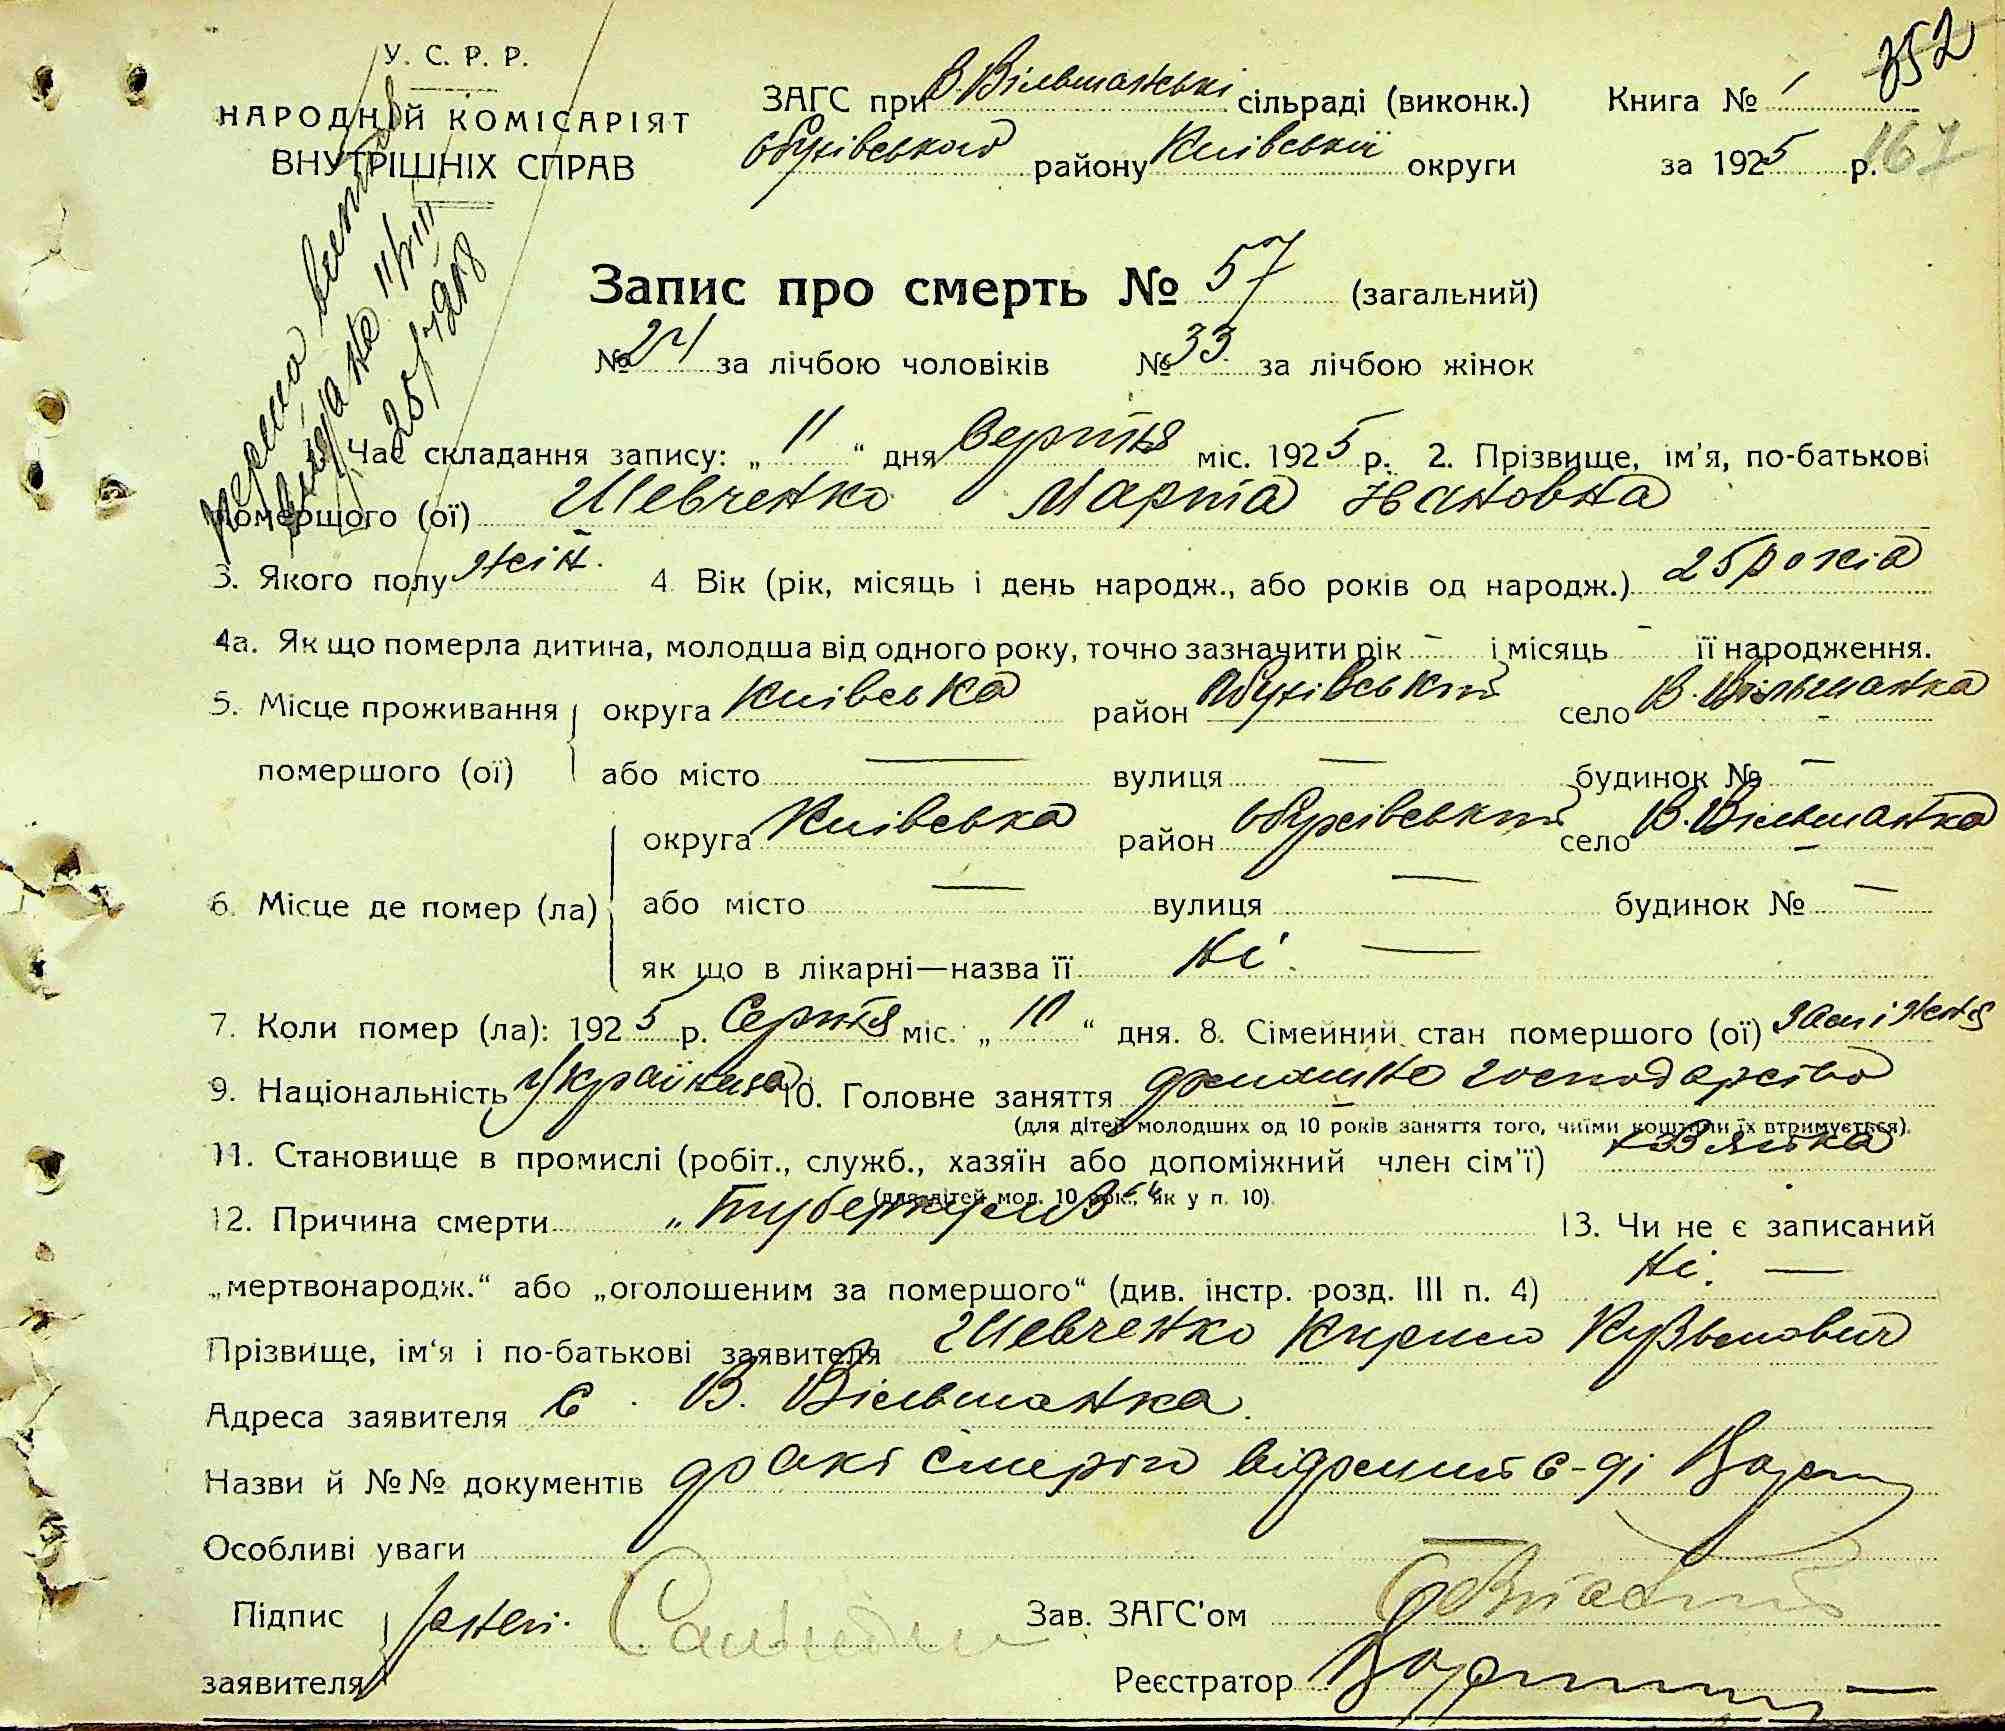 352
У. С. Р. Р.
НАРОДНІЙ КОМІСАРІЯТ
ВНУТРІШНІХ СПРАВ
ЗАГС при В. Вільшанські сільраді (виконк.)
Обухівського району Київської округи
Книга № 1
за 1925 р.
167
Запис про смерть № 57 (загальний)
№ 24 за лічбою чоловіків № 33 за лічбою жінок
1. Час складання запису: „ 11 “ дня Серпня міс. 1925 р. 2. Прізвище, ім'я, по-батькові
помершого (ої) Шевченко Марта Івановна
3. Якого полу жін. 4. Вік (рік, місяць і день народж., або років од народж.) 25 років
4а. Як що померла дитина, молодша від одного року, точно зазначити рік — і місяць — її народження.
5. Місце проживання округа Київська район Обухівський село В. Вільшанка
помершого (ої) або місто — вулиця — будинок № —
округа Київська район Обухівський село В. Вільшанка
6. Місце де помер (ла) або місто — вулиця — будинок № —
як що в лікарні—назва її Ні. —
7. Коли помер (ла): 1925 р. Серпня міс. „ 10 “ дня. 8. Сімейний стан помершого (ої) заміжня
9. Національність Українка 10. Головне заняття домашнє господарство
(для дітей молодших од 10 років заняття того, чиїми коштами їх втримується).
11. Становище в промислі (робіт., служб., хазяїн або допоміжний член сім'ї) хазяйка
(для дітей мол. 10 рок., як у п. 10).
12. Причина смерти „Туберкульоз“ 13. Чи не є записаний
„мертвонародж.“ або „оголошеним за помершого“ (див. інстр. розд. III п. 4) Ні. —
Прізвище, ім‘я і по-батькові заявителя Шевченко Кирило Кузьмович
Адреса заявителя с. В. Вільшанка.
Назви й №№ документів
Особливі уваги —
Підпис
заявителя
Зав. ЗАГС'ом
Реєстратор